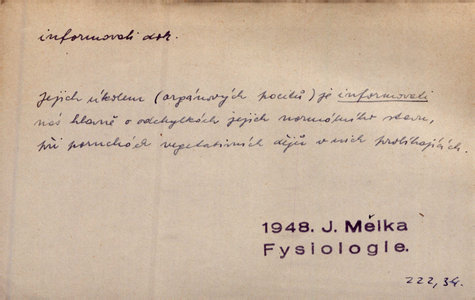 informovati dok.
Jejich úkolem (orgánových pocitů) je informovati
nás hlavně o odchylkách jejich normálního stavu,
při poruchách vegetativních dějů v nich probíhajících.
1948. J. Mělka
Fysiologie.
222,34.